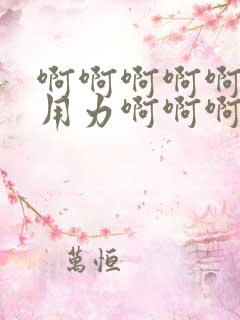 啊啊啊啊啊
用力啊啊啊
萬恒